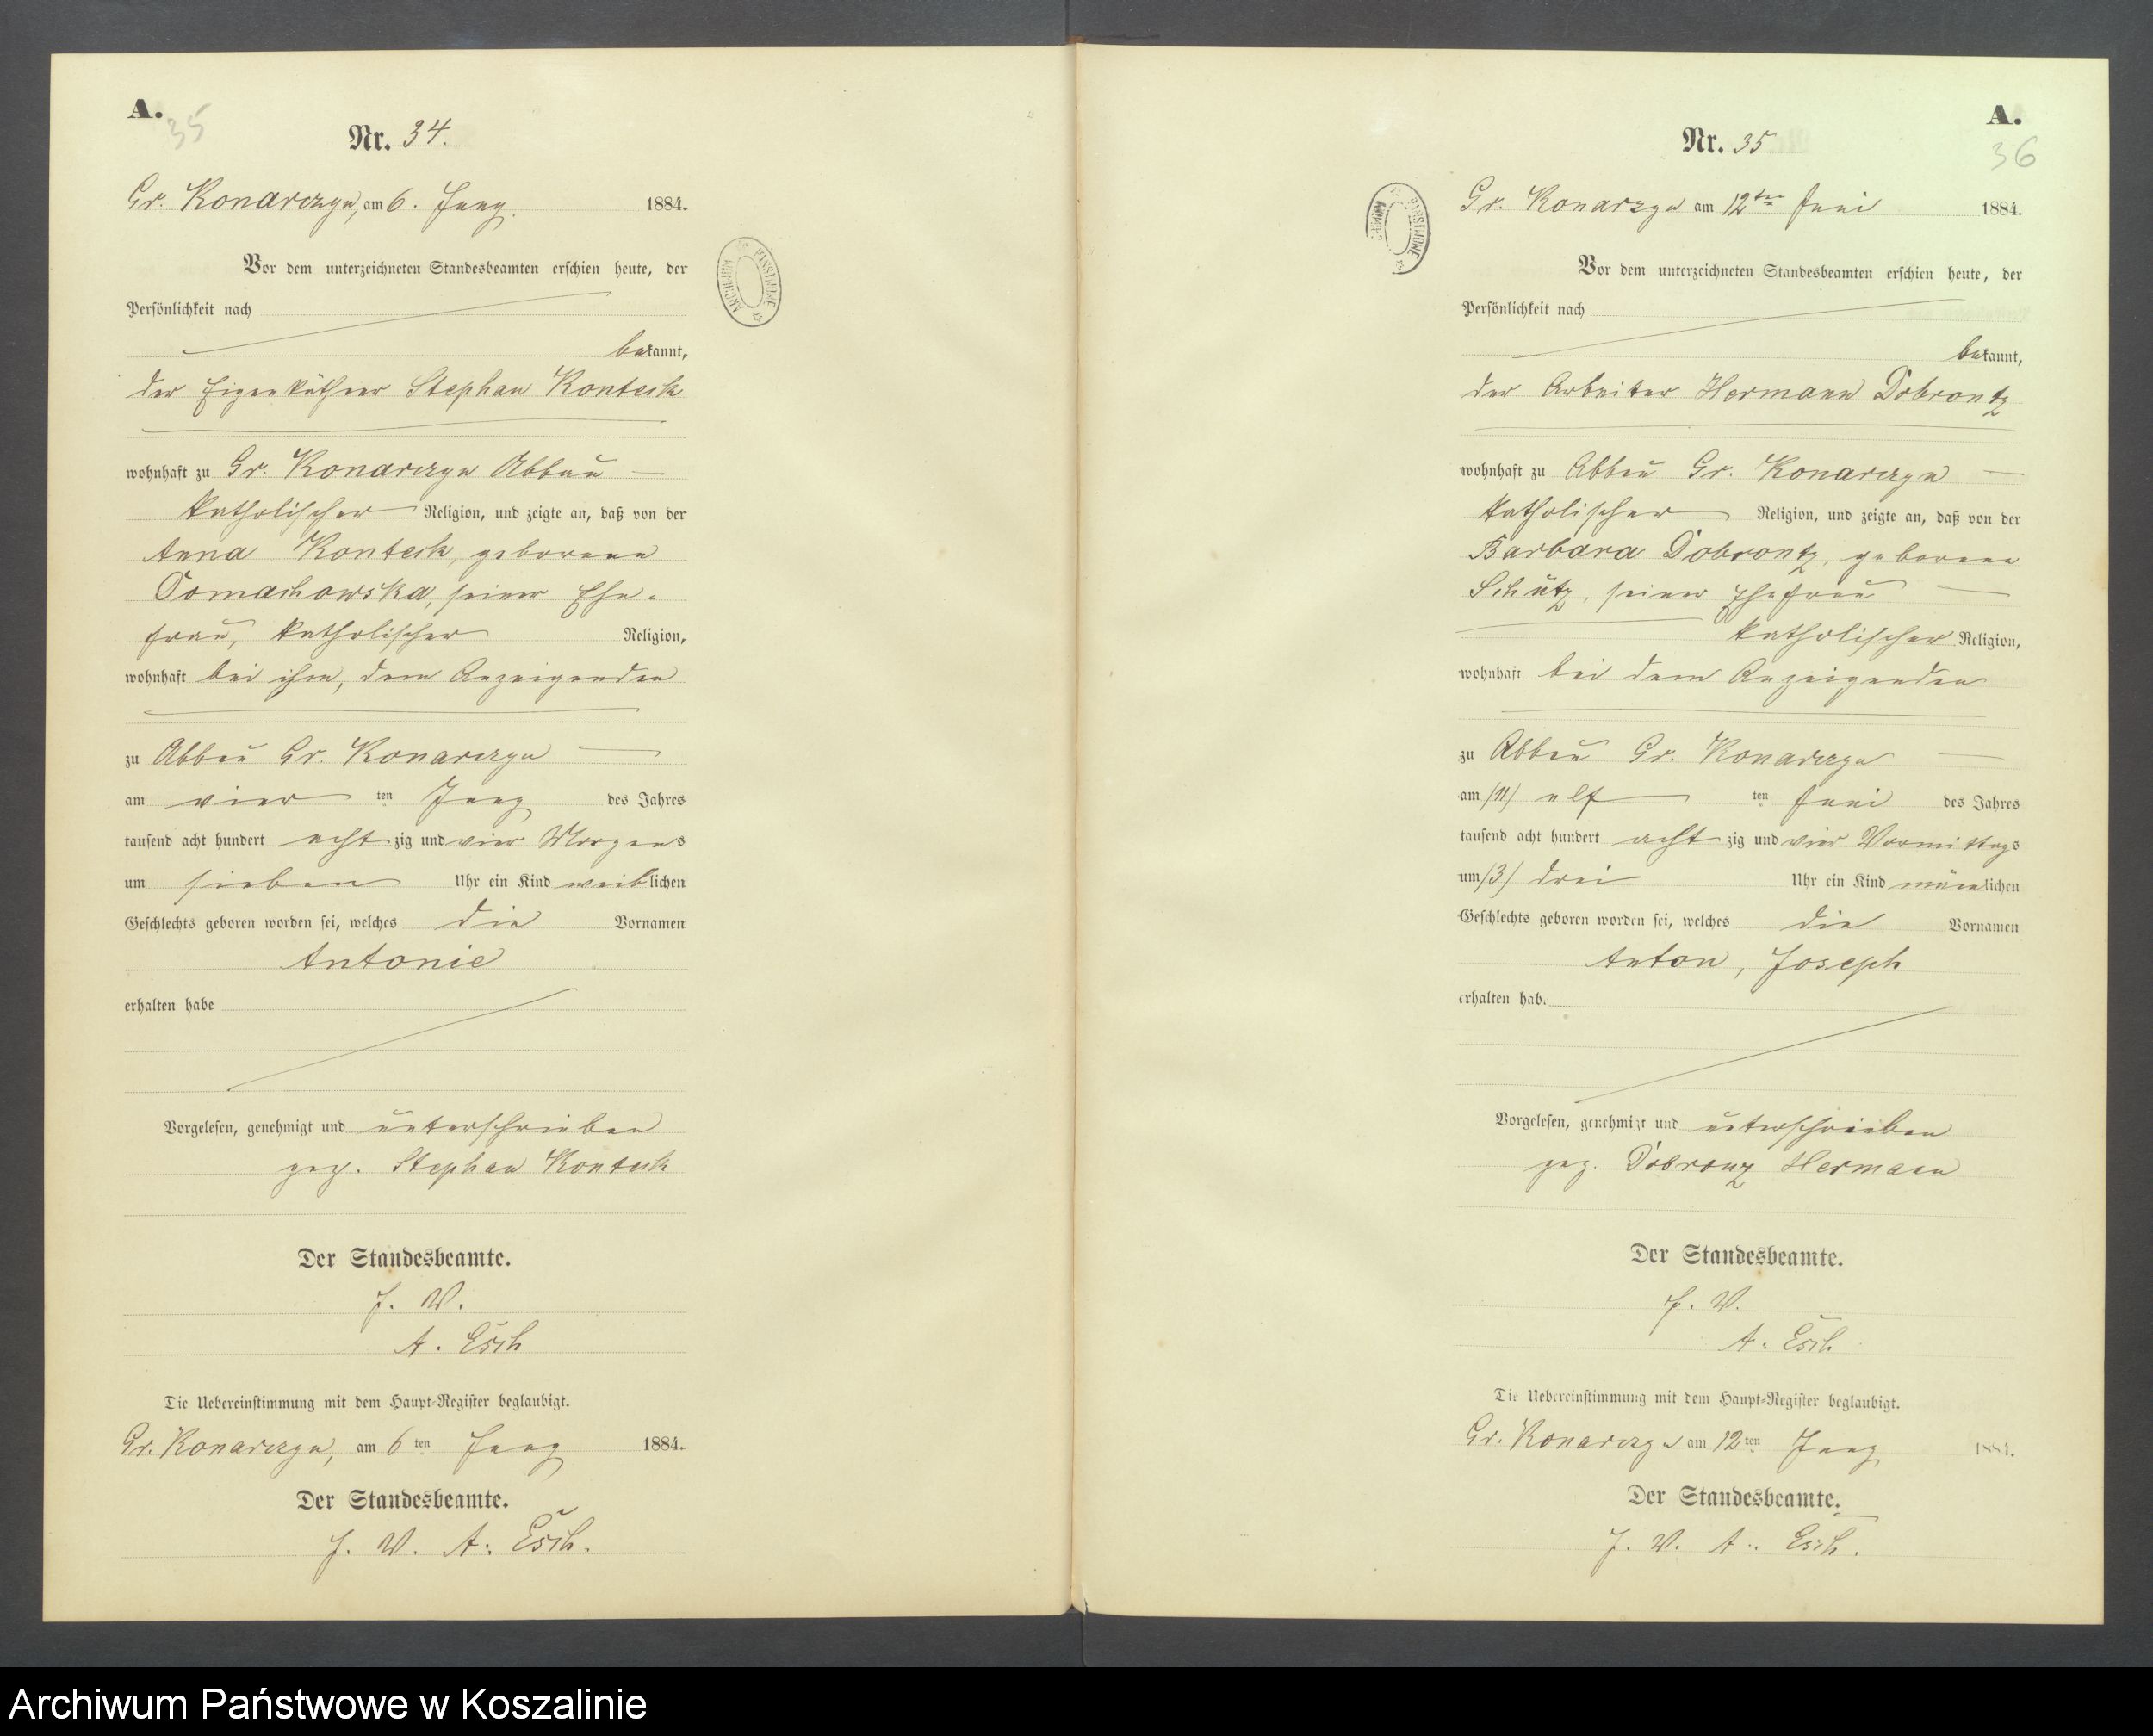 A.
35
Nr. 34.
Gr. Konarczyn, am 6. Juny 1884.
Vor dem unterzeichneten Standesbeamten erschien heute, der
Persönlichkeit nach
bekannt,
der Eigenkäthner Stephan Konteck
wohnhaft zu Gr. Konarczyn Abbau
katholischer Religion, und zeigte an, daß von der
Anna Konteck, geborene
Domachowska, seiner Ehe-
frau, katholischer Religion,
wohnhaft bei ihm, dem Anzeigenden
zu Abbau Gr. Konarczyn
am vier ten Juny des Jahres
tausend acht hundert acht zig und vier Morgens
um sieben Uhr ein Kind weiblichen
Geschlechts geboren worden sei, welches die Vornamen
Antonie
erhalten habe
Vorgelesen, genehmigt und unterschrieben
gez. Stephan Konteck
Der Standesbeamte.
J. V.
A. Esch
Die Uebereinstimmung mit dem Haupt-Register beglaubigt.
Gr. Konarczyn, am 6 ten Juny 1884.
Der Standesbeamte.
J. V. A. Esch.
ARCHIWUM PAŃSTWOWE
A.
36
Nr. 35
Gr. Konarzyn am 12ten Juni 1884.
Vor dem unterzeichneten Standesbeamten erschien heute, der
Persönlichkeit nach
bekannt,
der Arbeiter Hermann Dobrontz
wohnhaft zu Abbau Gr. Konarczyn
katholischer Religion, und zeigte an, daß von der
Barbara Dobrontz, geborene
Schütz, seiner Ehefrau
katholischer Religion,
wohnhaft bei dem Anzeigenden
zu Abbau Gr. Konarczyn
am /11/ elf ten Juni des Jahres
tausend acht hundert acht zig und vier Vormittags
um /3/ drei Uhr ein Kind männlichen
Geschlechts geboren worden sei, welches die Vornamen
Anton, Joseph
erhalten hab.
Vorgelesen, genehmigt und unterschrieben
gez. Dobronz Hermann
Der Standesbeamte.
J. V.
A. Esch
Die Uebereinstimmung mit dem Haupt-Register beglaubigt.
Gr. Konarczyn am 12 ten Juny 1884.
Der Standesbeamte.
J. V. A. Esch.
ARCHIWUM PAŃSTWOWE
Archiwum Państwowe w Koszalinie